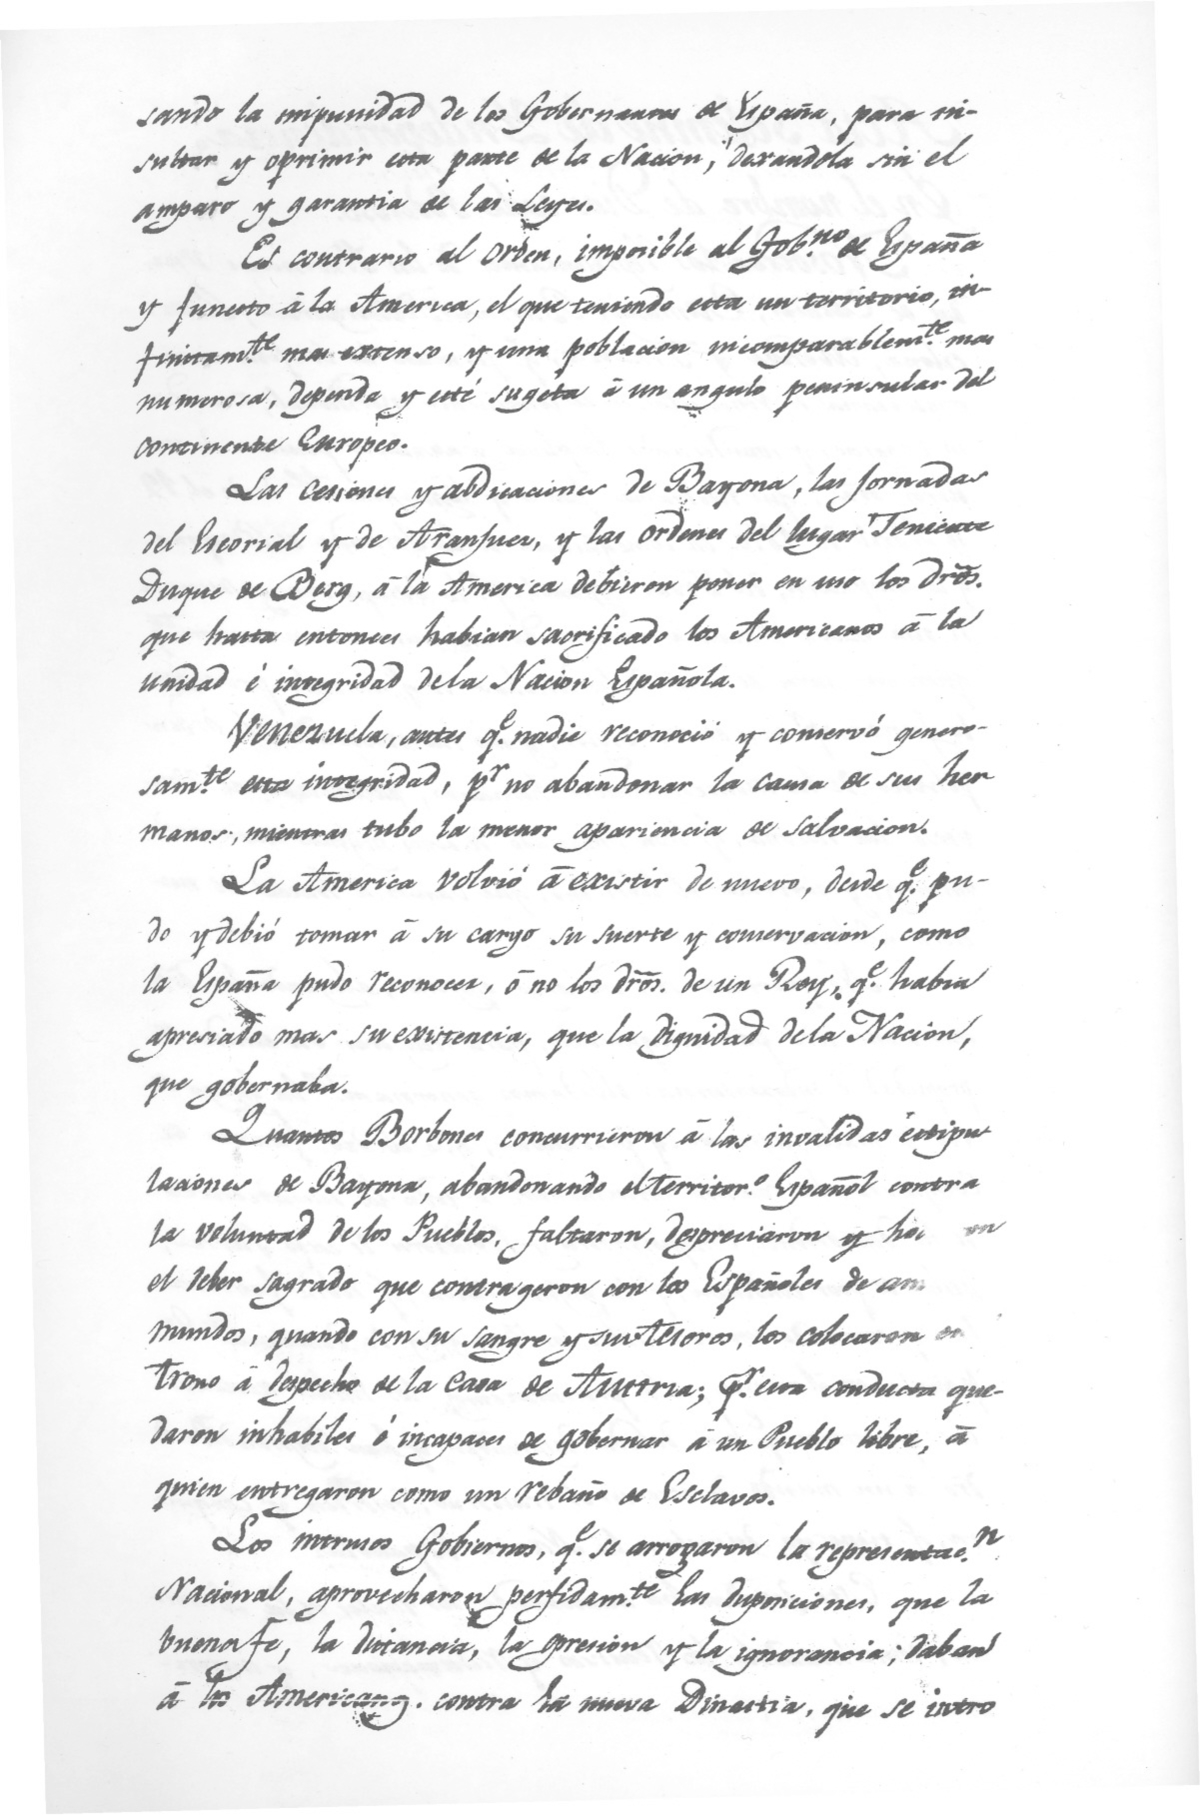 sando la impunidad de los Gobernantes de España, para in-
sultar y oprimir esta parte de la Nacion, dexandola sin el
amparo y garantia de las Leyes.
Es contrario al orden, imposible al Gob.no de España
y funesto â la America, el que teniendo esta un territorio, in-
finitam.te mas extenso, y una poblacion incomparablem.te mas
numerosa, dependa y esté sugeta â un angulo peninsular del
continente Europeo.
Las cesiones y abdicaciones de Bayona, las Jornadas
del Escorial y de Aranjues, y las ordenes del lugar Teniente
Duque de Berg, â la America debieron poner en uso los dr̃os.
que hasta entonces habian sacrificado los Americanos â la
unidad é integridad de la Nacion Española.
Venezuela, antes q.e nadie reconoció y conservó genero-
sam.te esta integridad, p.r no abandonar la causa de sus her
manos, mientras tubo la menor apariencia de salvacion.
La America volvió â existir de nuevo, desde q.e pu-
do y debió tomar â su cargo su suerte y conservacion, como
la España pudo reconocer, ô no los dr̃os. de un Rey, q.e habia
apresiado mas su existencia, que la dignidad de la Nacion,
que gobernaba.
Quantos Borbones concurrieron â las invalidas estipu
laciones de Bayona, abandonando el territor.o Español contra
la voluntad de los Pueblos, faltaron, despreciaron y
el deber sagrado que contrageron con los Españoles de
mundos, quando con su sangre y sus tesoros, los colocaron en
Trono â despecho de la Casa de Austria; p.r esta conducta que-
daron inhabiles é incapaces de gobernar â un Pueblo libre, â
quien entregaron como un rebaño de Esclavos.
Los intrusos Gobiernos, q.e se arrogaron la representac.n
Nacional, aprovecharon perfidam.te las disposiciones, que la
buena fe, la distancia, la opresion y la ignorancia; daban
â los Americanos. contra la nueva Dinastia, que se intro